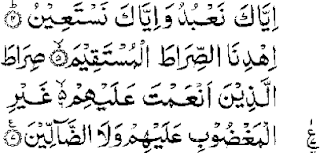 اِيَّاكَ نَعْبُدُ وَاِيَّاكَ نَسْتَعِيْنُ ؕ﴿۴﴾
اِهْدِنَا الصِّرَاطَ الْمُسْتَقِيْمَ ۙ﴿۵﴾ صِرَاطَ
الَّذِيْنَ اَنْعَمْتَ عَلَيْهِمْ ۙ۬ غَيْرِ
الْمَغْضُوْبِ عَلَيْهِمْ وَلَا الضَّآلِّيْنَ